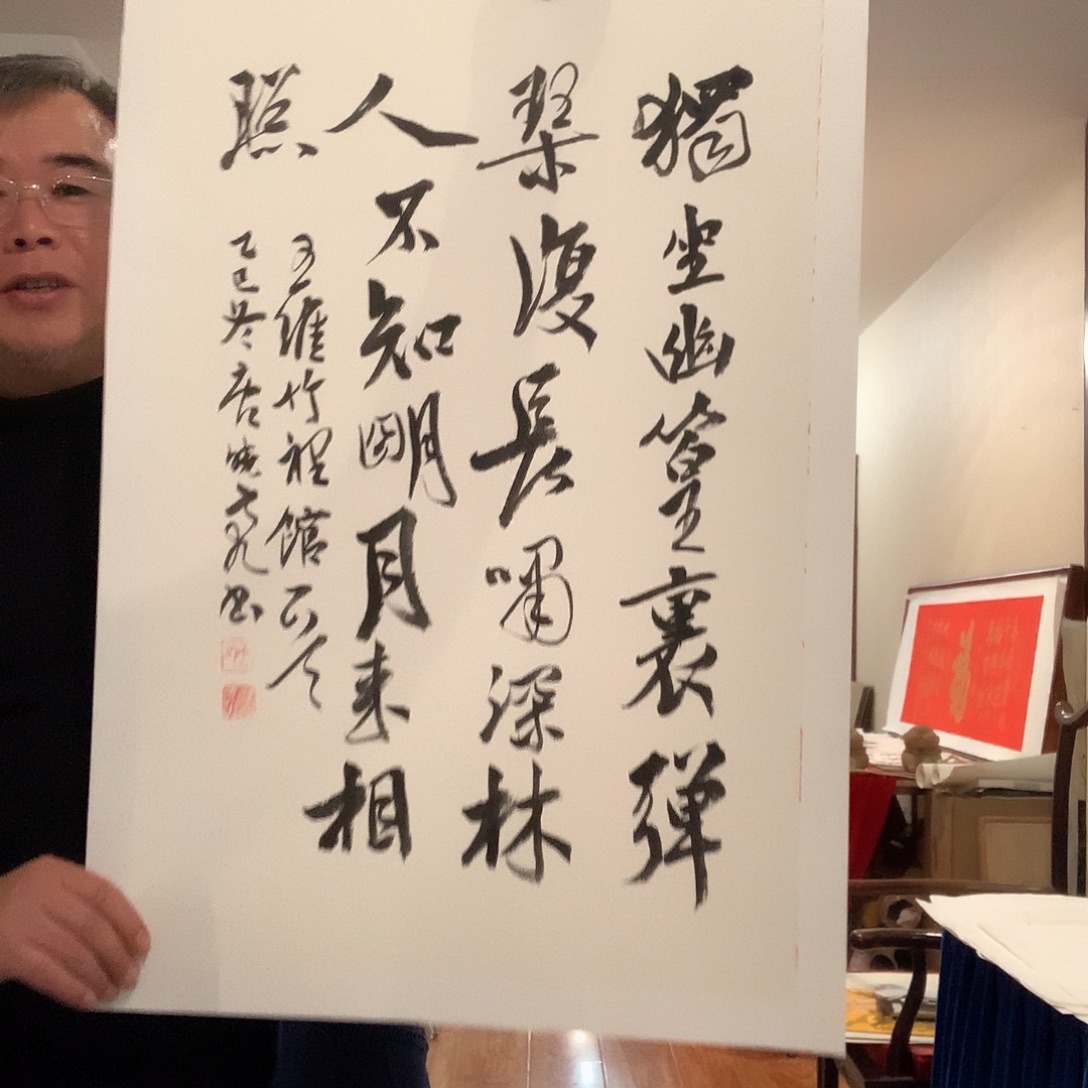 獨坐幽篁裏彈
琹復長嘯深林
人不知朙月来相
照
王維竹裡館
乙巳冬唐曉書